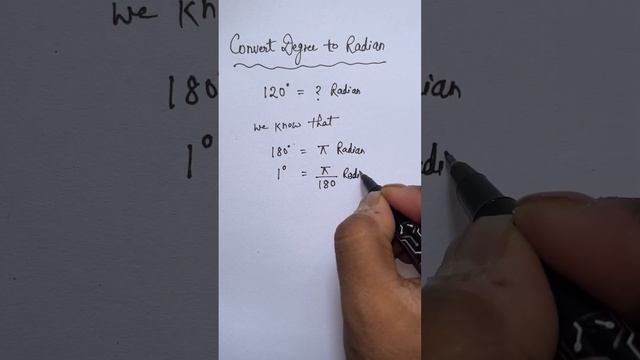 Convert Degree to Radian
120° = ? Radian
we know that
180° = π Radian
1° = π/180 Radi